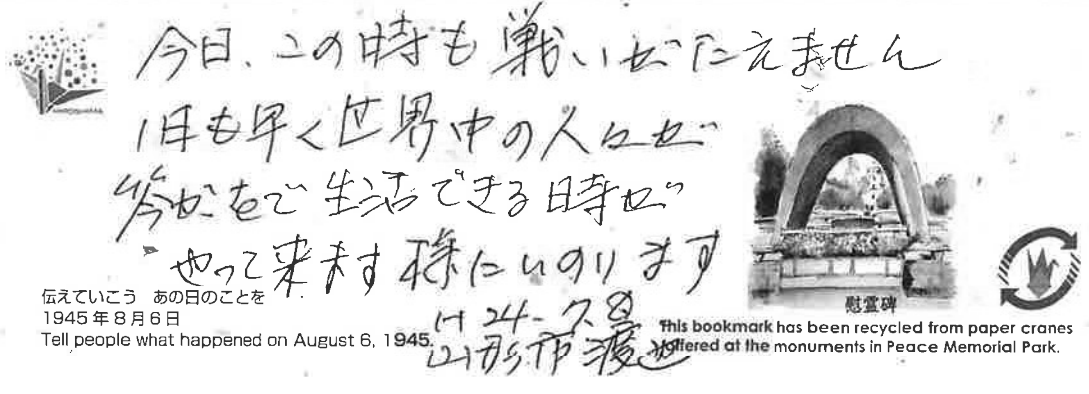 今日、この時も戦いがたえません
1日も早く世界中の人々が
笑がをで生活できる時が
やって来ます様にいのります
H24-7.8
山形市 渡辺
伝えていこう あの日のことを
1945年8月6日
Tell people what happened on August 6, 1945.
HIROSHIMA
慰霊碑
This bookmark has been recycled from paper cranes
offered at the monuments in Peace Memorial Park.